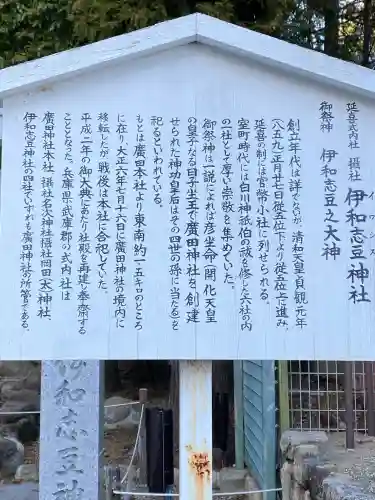 延喜式内社 摂社 伊和志豆神社
イワシズ
御祭神 伊和志豆之大神
創立年代は詳でないが、清和天皇貞観元年
(八五九)正月廿七日從五位下より從五位上に進み、
延喜の制には官幣小社に列せられる。
室町時代には白川神祇伯の誠を修した六社の内
の一社として厚い崇敬を集めていた。
御祭神は一説によれば彦坐命(開化天皇
の皇子なる日子坐王で廣田神社を、創建
せられた神功皇后はその四世の孫に当たる)を
祀るといわれている。
もとは廣田本社より東南約一.五キロのところ
に在り、大正六年七月十六日に廣田神社の境内に
移転したが、戦後は本社に合祀していた。
平成二年の御大典にあたり社殿を再建し奉斎する
こととなった。兵庫県武庫郡の式内社は
廣田神社本社、摂社名次神社摂社岡田(太)神社、
伊和志豆神社の四社でいずれも廣田神社の所管である。
伊和志豆神